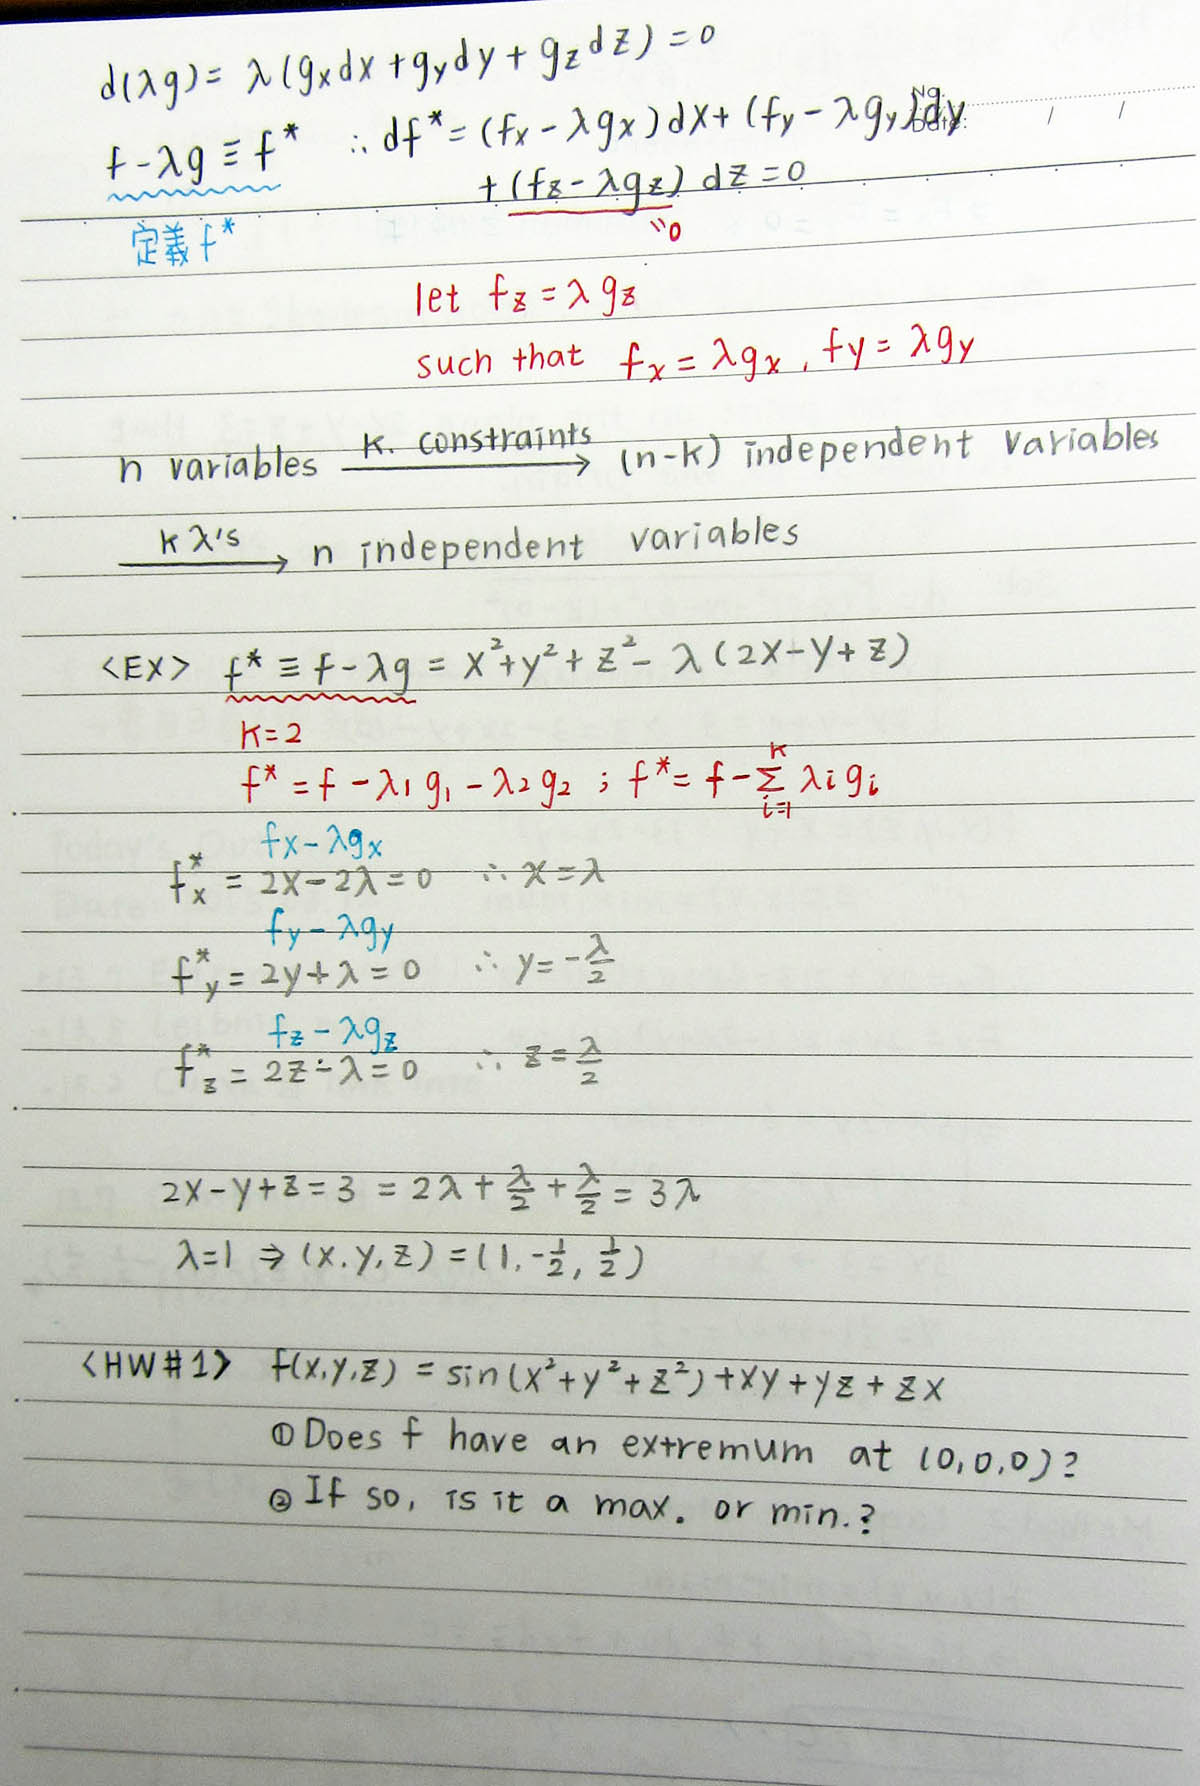 d(λg) = λ(gₓdx + g_y dy + g_z dz) = 0
No.
Date: / /
f - λg ≡ f* ∴ df* = (fₓ - λgₓ)dx + (f_y - λg_y)dy
+ (f_z - λg_z) dz = 0
定義 f* "0
let f_z = λ g_z
such that fₓ = λgₓ, f_y = λg_y
n variables K. constraints → (n-k) independent variables
k λ's → n independent variables
<EX> f* ≡ f - λg = x² + y² + z² - λ(2x - y + z)
K = 2
f* = f - λ₁g₁ - λ₂g₂ ; f* = f - Σ_{i=1}^{K} λᵢgᵢ
fₓ - λgₓ
f*ₓ = 2x - 2λ = 0 ∴ x = λ
f_y - λg_y
f*_y = 2y + λ = 0 ∴ y = -λ/2
f_z - λg_z
f*_z = 2z - λ = 0 ∴ z = λ/2
2x - y + z = 3 = 2λ + λ/2 + λ/2 = 3λ
λ = 1 ⇒ (x, y, z) = (1, -1/2, 1/2)
<HW#1> f(x,y,z) = sin(x² + y² + z²) + xy + yz + zx
① Does f have an extremum at (0,0,0)?
② If so, is it a max. or min.?